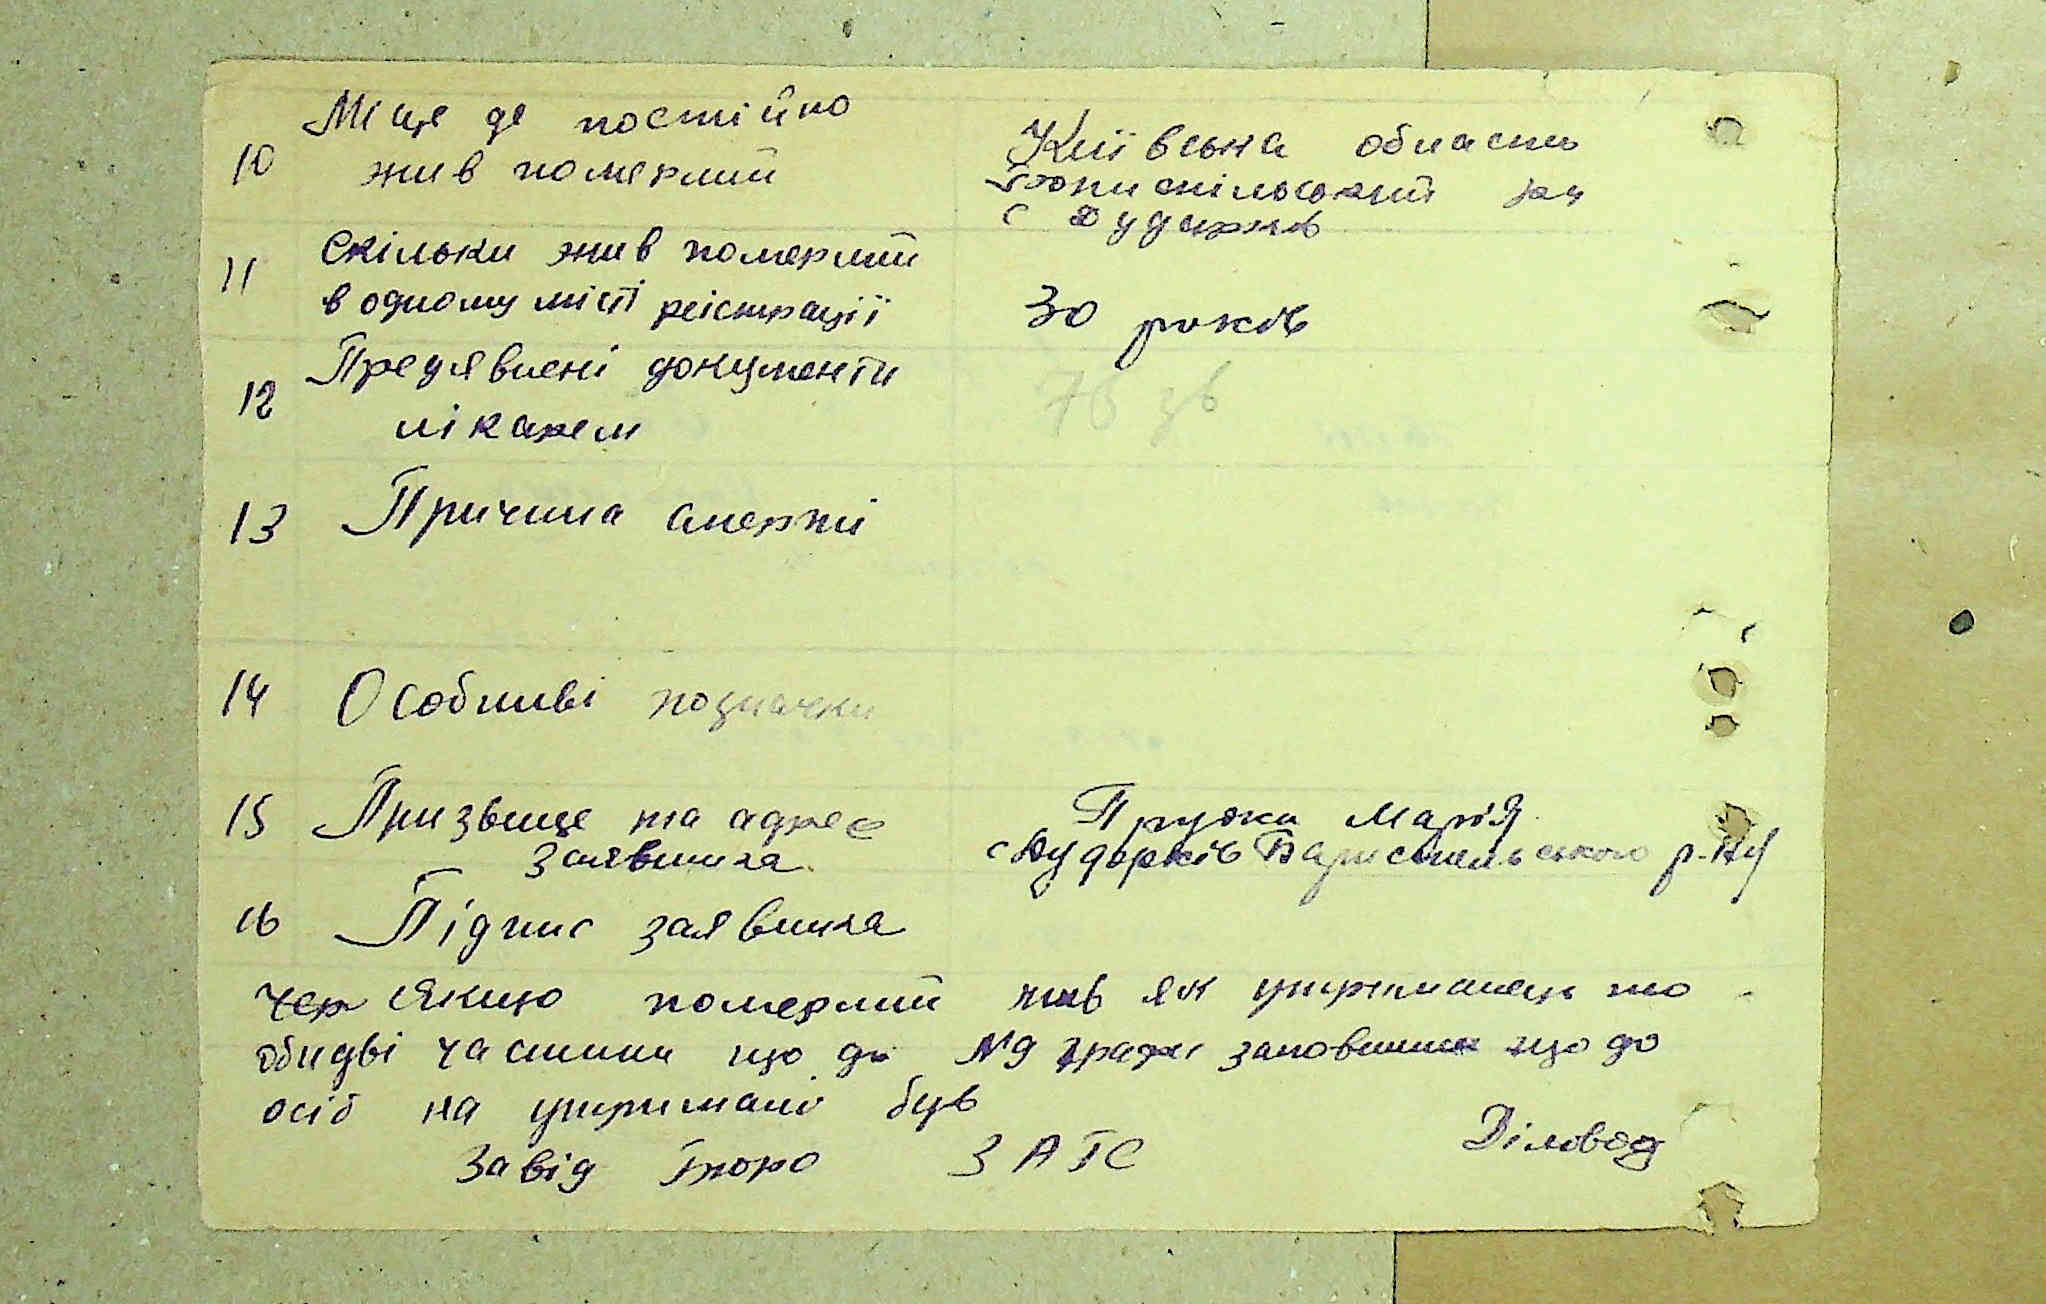 Місце де постійно
10 жив померлий
Київська область
Бориспільський р-н
с Дударків
11 Скільки жив померлий
в одному місті реістрації
30 років
12 Предявлені документи
лікарем
76 зв
13 Причина смерти
14 Особливі позначки
15 Призвище та адрес
заявника
Пружки Марія
с Дударків Бариспольського р-ну
16 Підпис заявника
Якщо померлий жив як утриманець то
обидві частини що до №9 графи заповнити що до
осіб на утримані був
Завід Бюро ЗАГС
Діловод